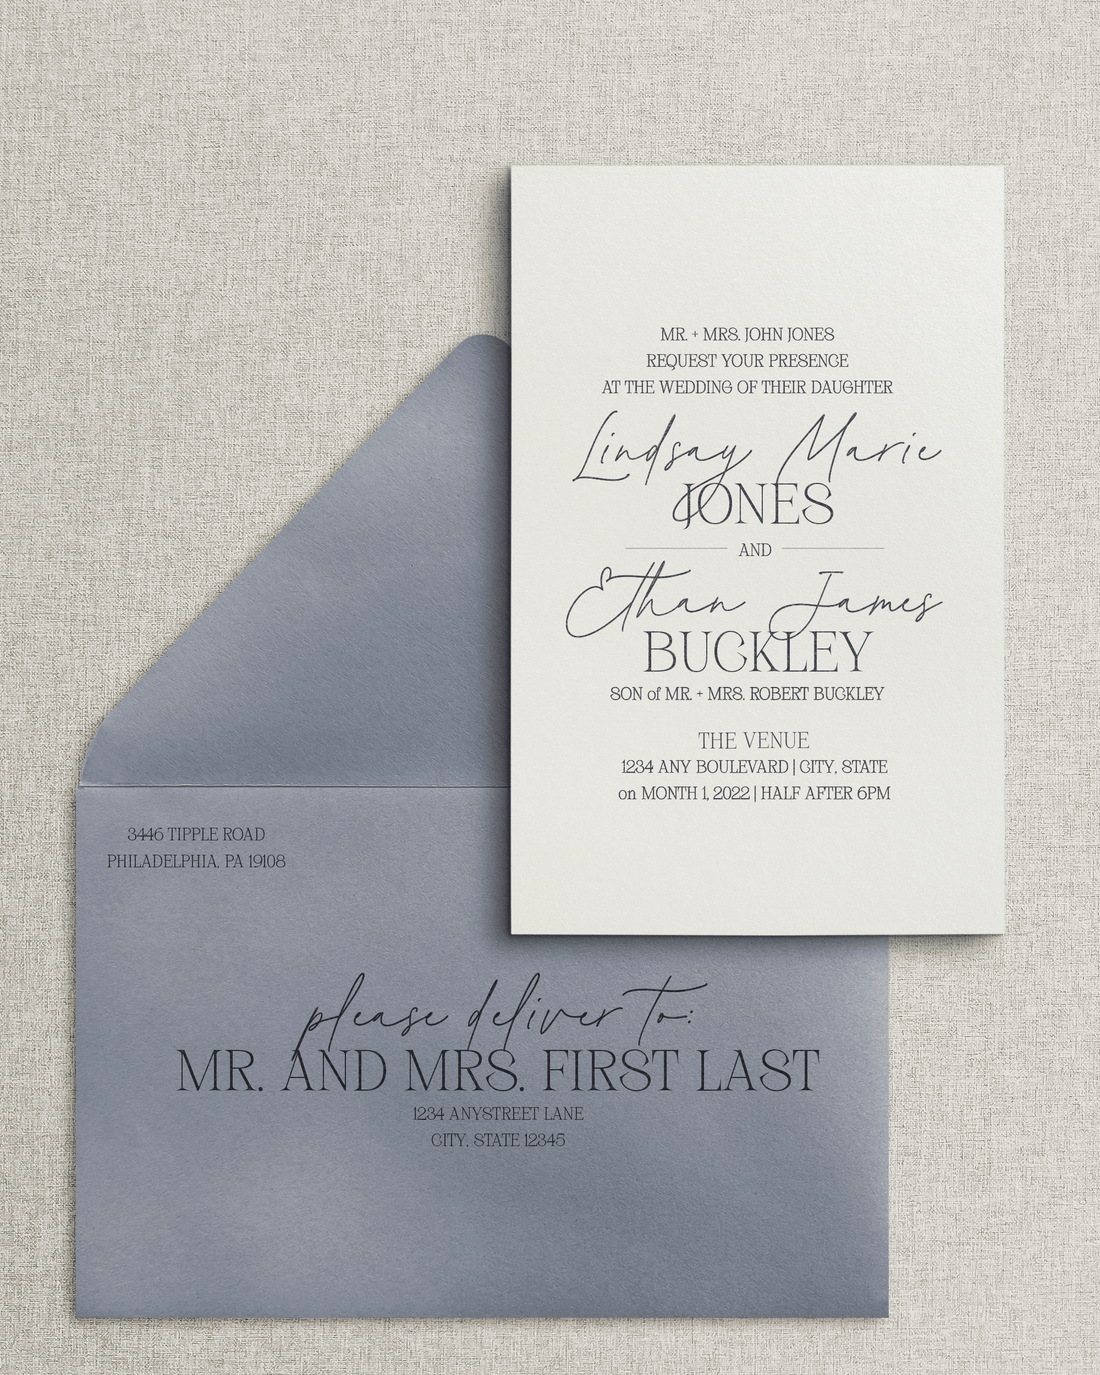 MR. + MRS. JOHN JONES
REQUEST YOUR PRESENCE
AT THE WEDDING OF THEIR DAUGHTER
Lindsay Marie
JONES
AND
Ethan James
BUCKLEY
SON of MR. + MRS. ROBERT BUCKLEY
THE VENUE
1234 ANY BOULEVARD | CITY, STATE
on MONTH 1, 2022 | HALF AFTER 6PM
3446 TIPPLE ROAD
PHILADELPHIA, PA 19108
please deliver to:
MR. AND MRS. FIRST LAST
1234 ANYSTREET LANE
CITY, STATE 12345